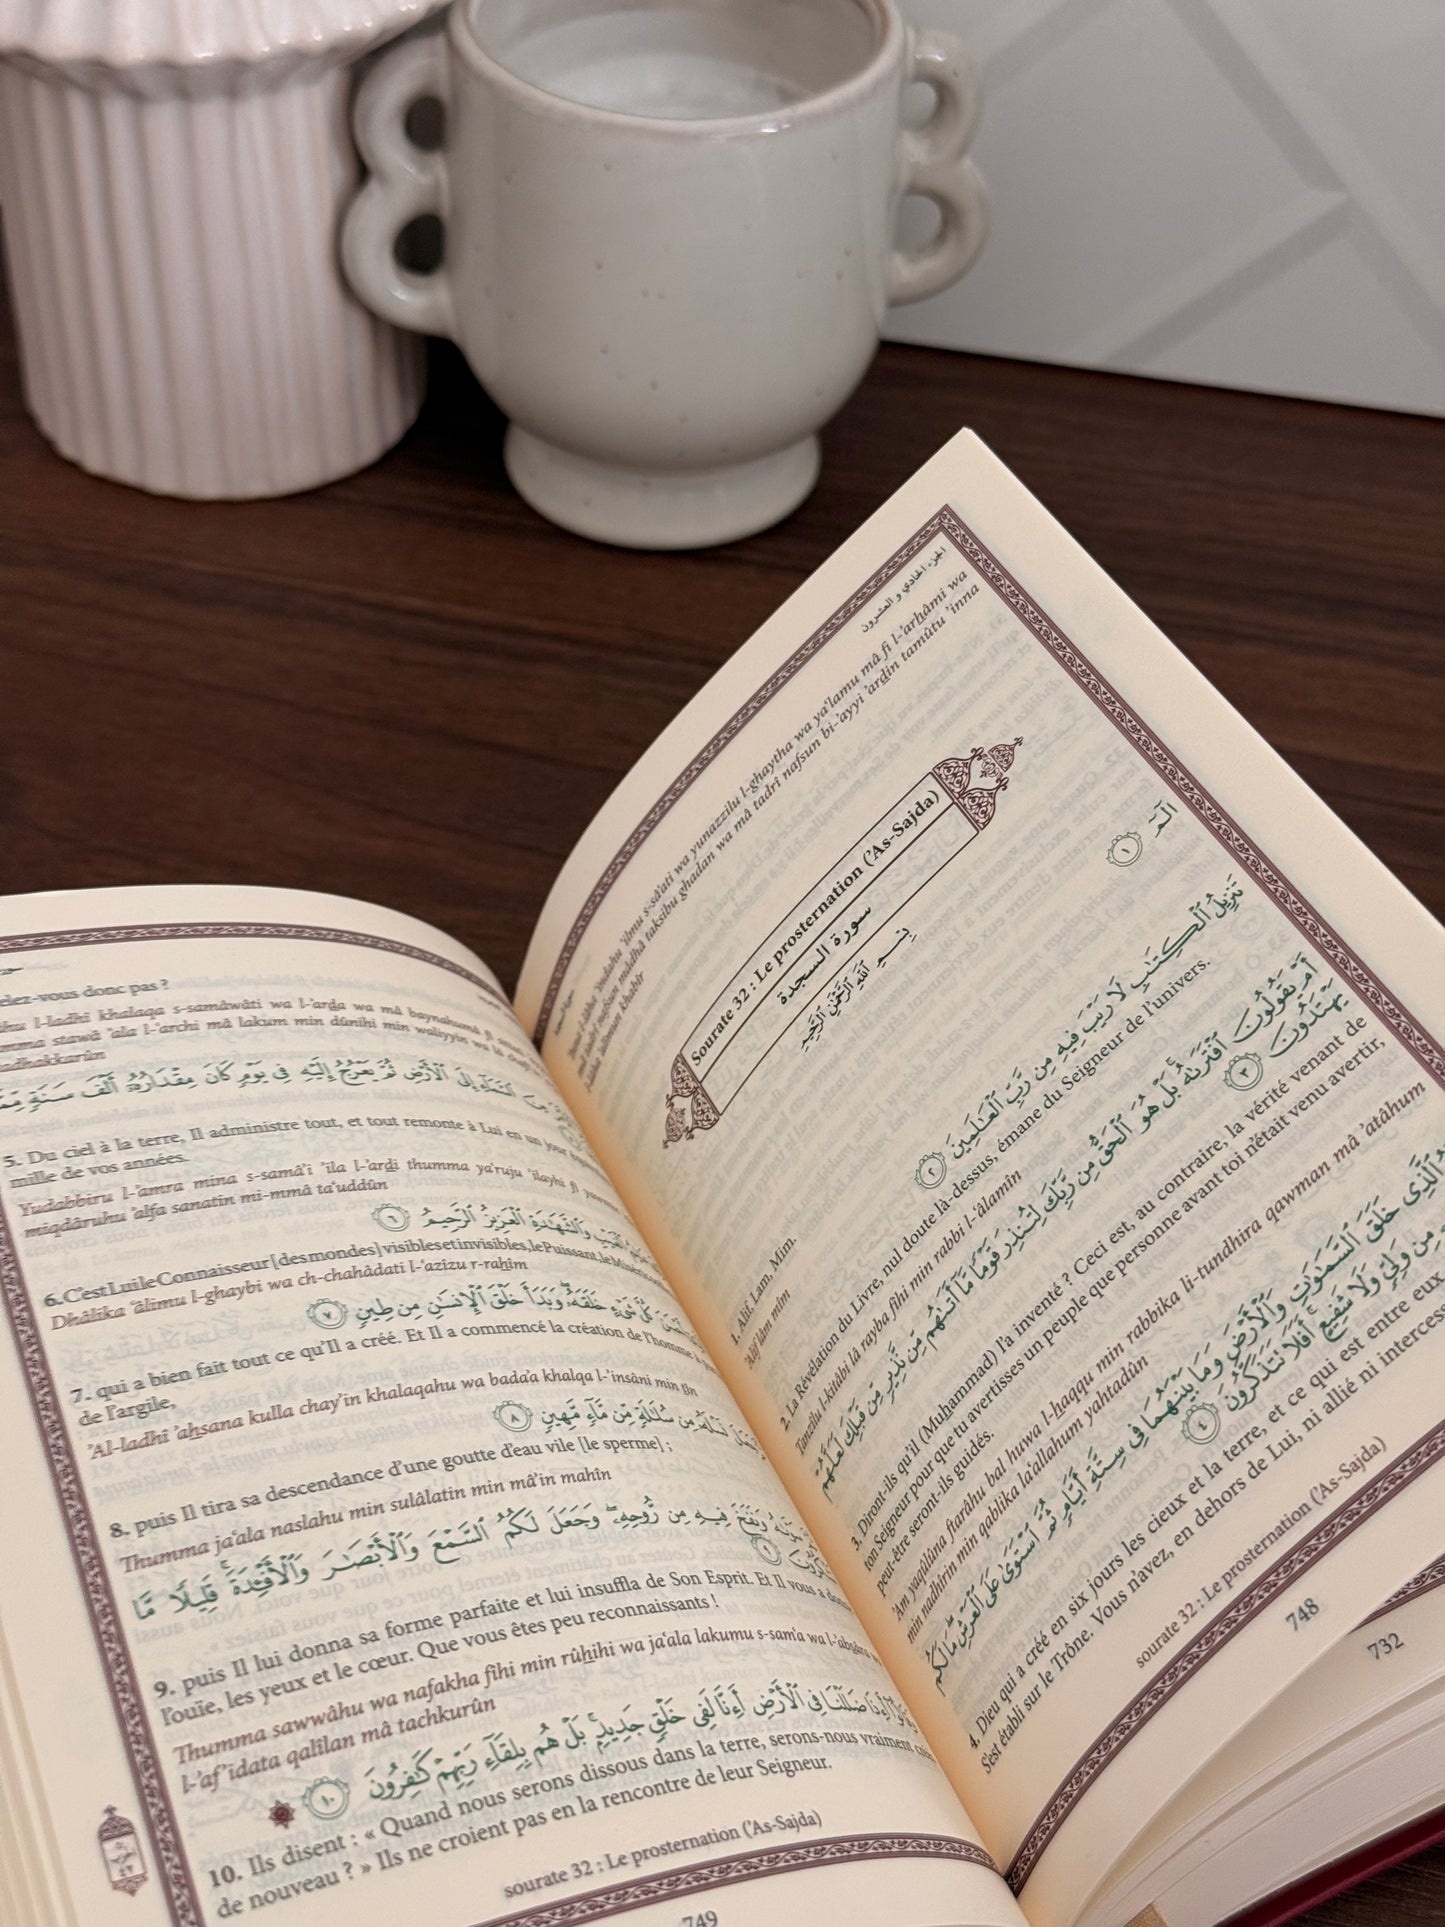 الجزء الحادي و العشرون
wa yunazzilu l-ghaytha wa ya‘lamu mâ fi l-’arhâmi wa
ghadan wa mâ tadrî nafsun bi-’ayyi ’ardin tamûtu ’inna
Sourate 32 : Le prosternation (’As-Sajda)
سورة السجدة
بِسْمِ ٱللَّهِ ٱلرَّحْمَٰنِ ٱلرَّحِيمِ
الٓمٓ ١
1. Alif, Lam, Mim.
’Alif lâm mîm
تَنزِيلُ ٱلْكِتَٰبِ لَا رَيْبَ فِيهِ مِن رَّبِّ ٱلْعَٰلَمِينَ ٢
2. La Révélation du Livre, nul doute là-dessus, émane du Seigneur de l’univers.
Tanzîlu l-kitâbi lâ rayba fîhi min rabbi l-‘âlamîn
أَمْ يَقُولُونَ ٱفْتَرَىٰهُ ۚ بَلْ هُوَ ٱلْحَقُّ مِن رَّبِّكَ لِتُنذِرَ قَوْمًا مَّآ أَتَىٰهُم مِّن نَّذِيرٍ مِّن قَبْلِكَ لَعَلَّهُمْ
يَهْتَدُونَ ٣
3. Diront-ils qu’il (Muhammad) l’a inventé ? Ceci est, au contraire, la vérité venant de
ton Seigneur pour que tu avertisses un peuple que personne avant toi n’était venu avertir,
peut-être seront-ils guidés.
’Am yaqûlûna ftarâhu bal huwa l-haqqu min rabbika li-tundhira qawman mâ ’atâhum
min nadhîrin min qablika la‘allahum yahtadûn
ٱلَّذِى خَلَقَ ٱلسَّمَٰوَٰتِ وَٱلْأَرْضَ وَمَا بَيْنَهُمَا فِى سِتَّةِ أَيَّامٍ ثُمَّ ٱسْتَوَىٰ عَلَى ٱلْعَرْشِ ۖ مَا لَكُم
مِن وَلِىٍّ وَلَا شَفِيعٍ ۚ أَفَلَا تَتَذَكَّرُونَ ٤
4. Dieu qui a créé en six jours les cieux et la terre, et ce qui est entre eux
S’est établi sur le Trône. Vous n’avez, en dehors de Lui, ni allié ni intercess
sourate 32 : Le prosternation (’As-Sajda)
748
732
elez-vous donc pas ?
l-ladhî khalaqa s-samâwâti wa l-’arda wa mâ baynahumâ
stawâ ‘ala l-‘archi mâ lakum min dûnihi min waliyyin wa lâ
ٱلسَّمَآءِ إِلَى ٱلْأَرْضِ ثُمَّ يَعْرُجُ إِلَيْهِ فِى يَوْمٍ كَانَ مِقْدَارُهُۥٓ أَلْفَ سَنَةٍ
5. Du ciel à la terre, Il administre tout, et tout remonte à Lui en un jour
mille de vos années.
Yudabbiru l-’amra mina s-samâ’i ’ila l-’ardi thumma ya‘ruju ’ilayhi fî
miqdâruhu ’alfa sanatin mi-mmâ ta‘uddûn
ٱلْغَيْبِ وَٱلشَّهَٰدَةِ ٱلْعَزِيزُ ٱلرَّحِيمُ ٦
6. C’est Lui le Connaisseur [des mondes] visibles et invisibles, le Puissant, le
Dhâlika ‘âlimu l-ghaybi wa ch-chahâdati l-‘azîzu r-rahîm
كُلَّ شَىْءٍ خَلَقَهُۥ ۖ وَبَدَأَ خَلْقَ ٱلْإِنسَٰنِ مِن طِينٍ ٧
7. qui a bien fait tout ce qu’Il a créé. Et Il a commencé la création de l’homme à
de l’argile,
’Al-ladhî ’ahsana kulla chay’in khalaqahu wa bada’a khalqa l-’insâni min tîn
مِن سُلَٰلَةٍ مِّن مَّآءٍ مَّهِينٍ ٨
8. puis Il tira sa descendance d’une goutte d’eau vile [le sperme] ;
Thumma ja‘ala naslahu min sulâlatin min mâ’in mahîn
وَنَفَخَ فِيهِ مِن رُّوحِهِۦ ۖ وَجَعَلَ لَكُمُ ٱلسَّمْعَ وَٱلْأَبْصَٰرَ وَٱلْأَفْـِٔدَةَ ۚ قَلِيلًا مَّا
9. puis Il lui donna sa forme parfaite et lui insuffla de Son Esprit. Et Il vous a
l’ouïe, les yeux et le cœur. Que vous êtes peu reconnaissants !
Thumma sawwâhu wa nafakha fîhi min rûhihi wa ja‘ala lakumu s-sam‘a wa l-’absâra
l-’af’idata qalîlan mâ tachkurûn
أَءِذَا ضَلَلْنَا فِى ٱلْأَرْضِ أَءِنَّا لَفِى خَلْقٍ جَدِيدٍۭ ۚ بَلْ هُم بِلِقَآءِ رَبِّهِمْ كَٰفِرُونَ ١٠
10. Ils disent : « Quand nous serons dissous dans la terre, serons-nous vraiment
de nouveau ? » Ils ne croient pas en la rencontre de leur Seigneur.
sourate 32 : Le prosternation (’As-Sajda)
749